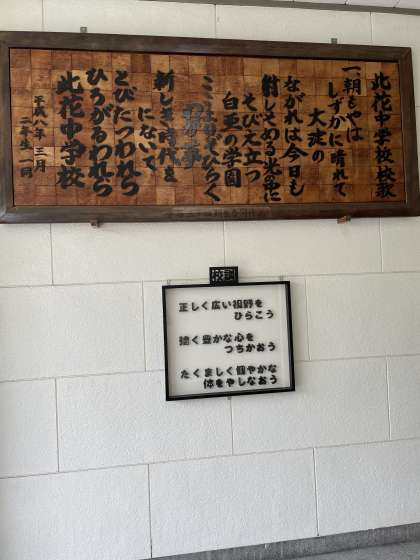 此花中学校校歌
一、朝もやは
しずかに晴れて
大淀の
ながれは今日も
射しそめる光の中に
そびえ立つ
白亜の学園
ひらく
新しき時代を
になって
とびたつわれら
ひろがるわれら
此花中学校
平成八年三月
二年生一同
校訓
正しく広い視野を
ひらこう
強く豊かな心を
つちかおう
たくましく健やかな
体をやしなおう